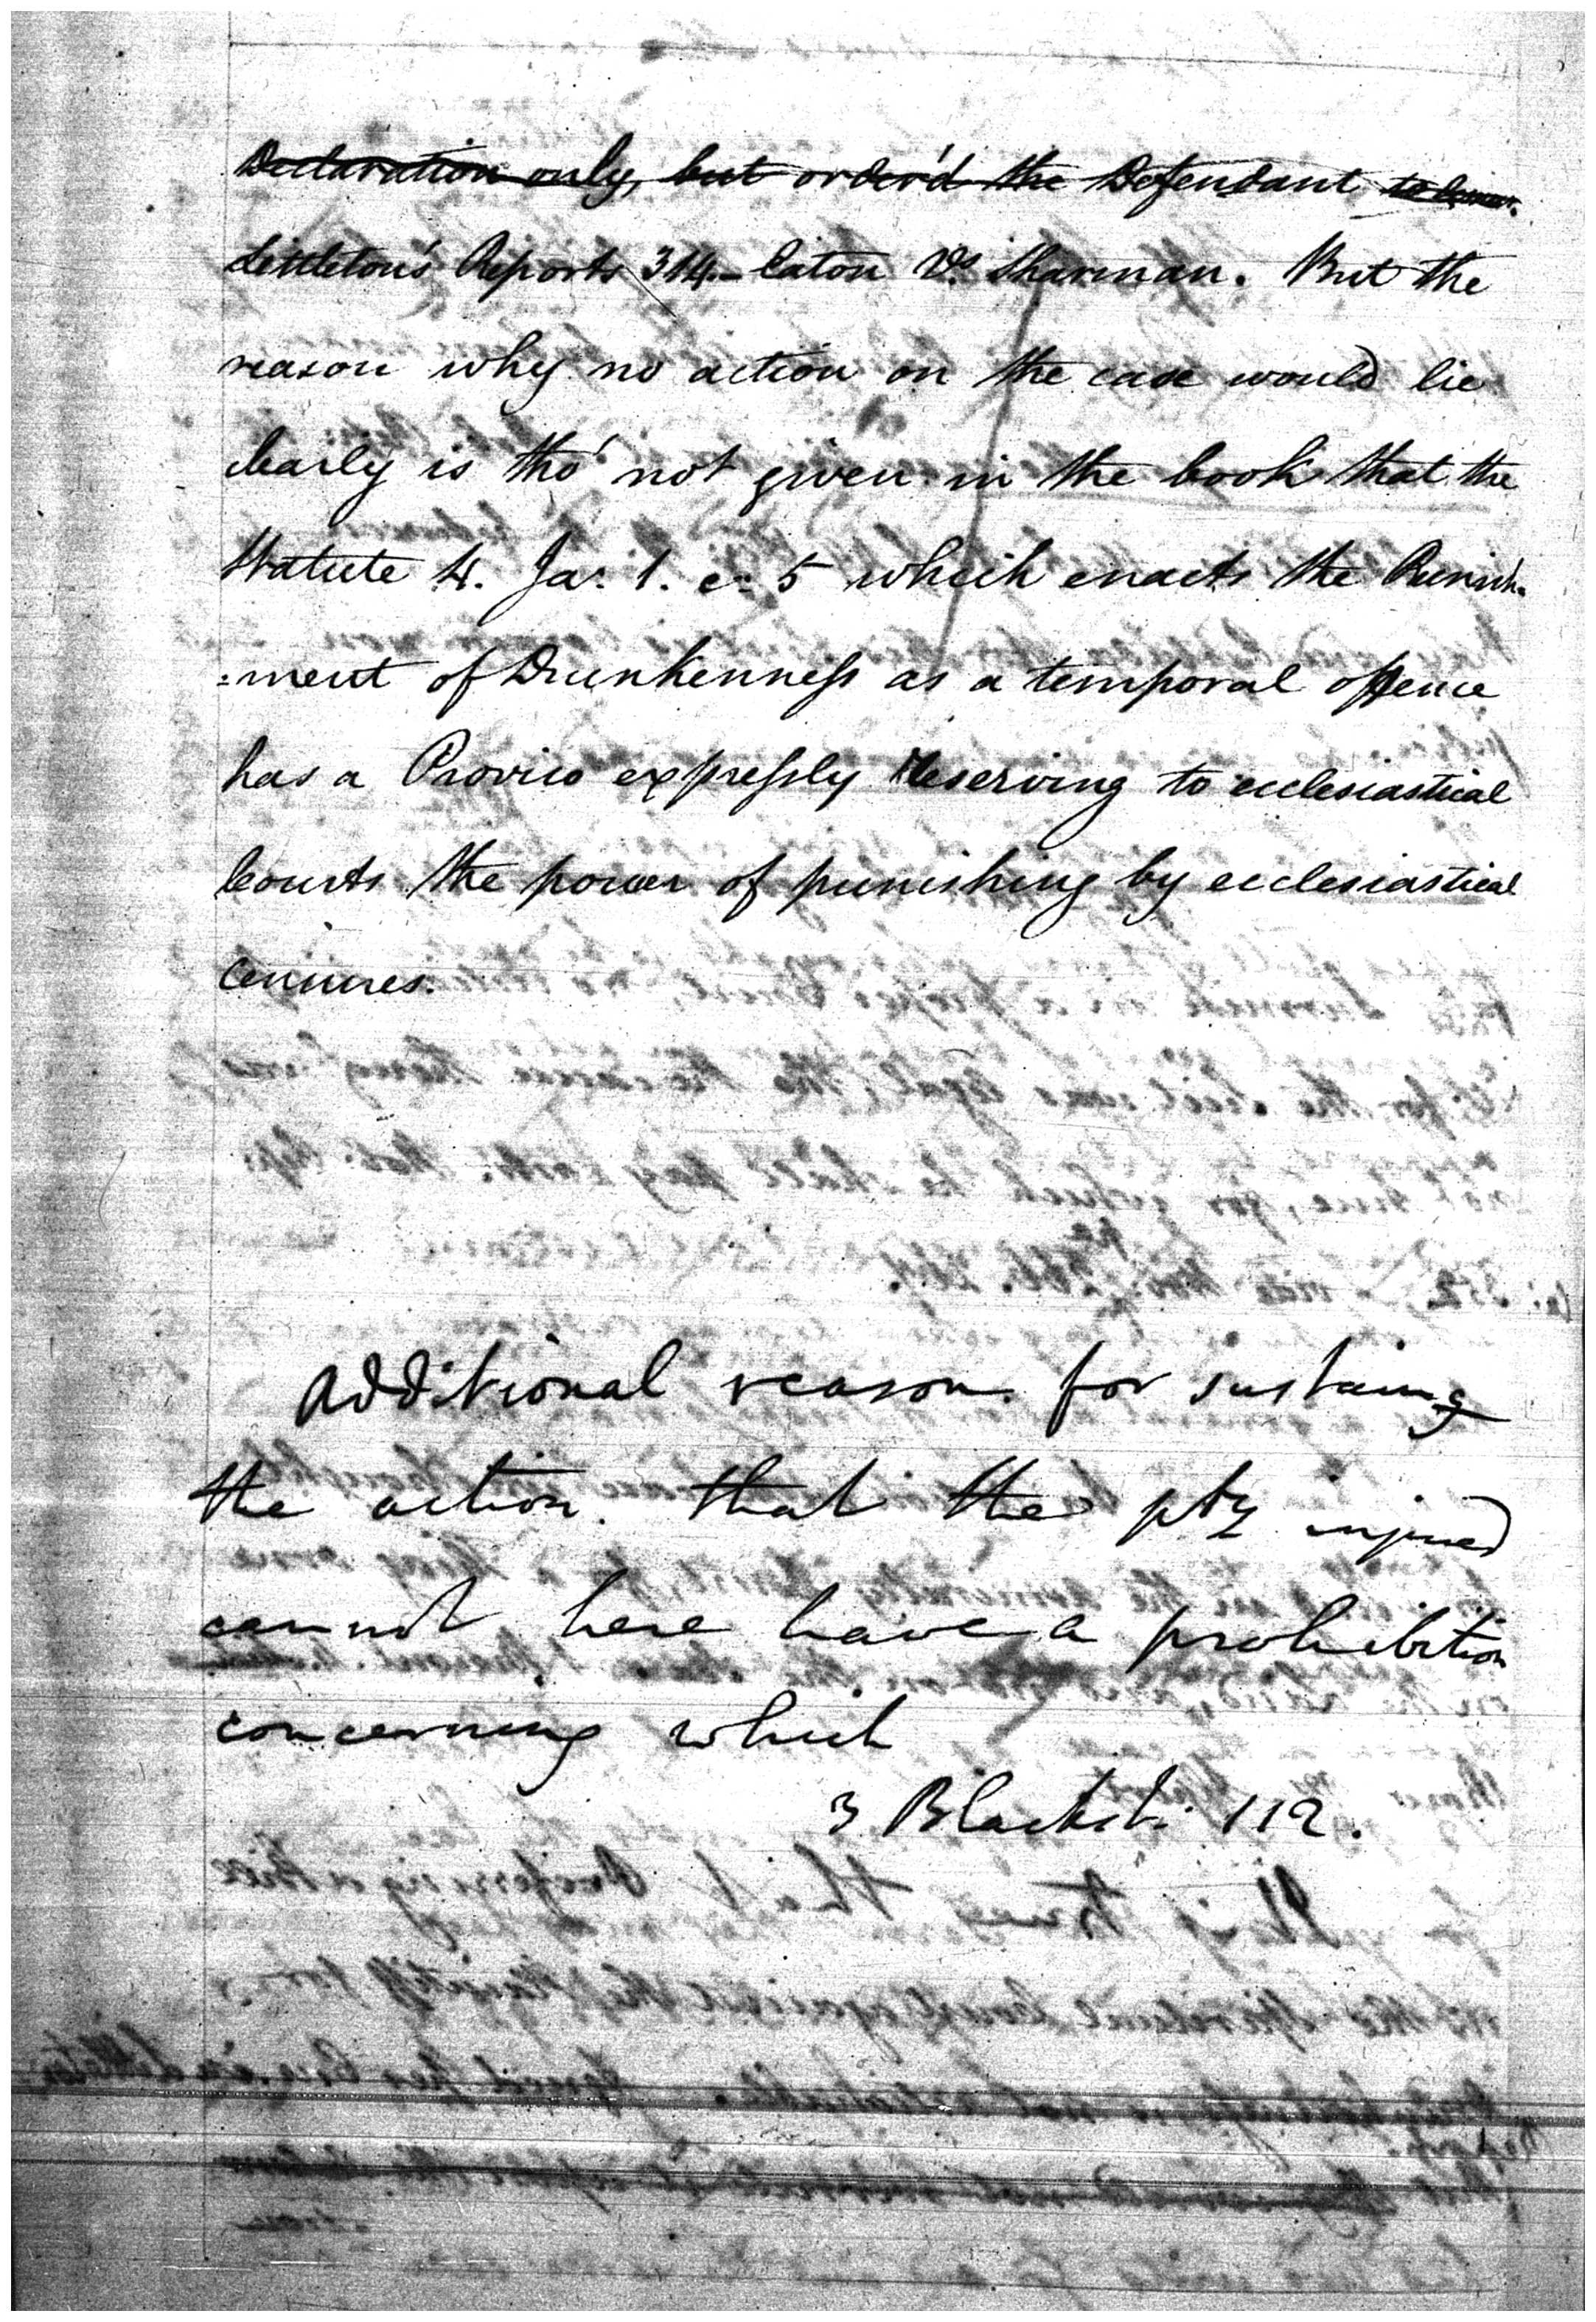 Declaration only, but order'd the Defendant to
Littleton's Reports 314.- Eaton Vs. Sharman. But the
reason why no action on the case would lie
clearly is tho' not given in the book that the
Statute 4. Ja: 1. c: 5 which enacts the Punish-
=ment of Drunkenness as a temporal offence
has a Proviso expressly reserving to ecclesiastical
Courts the power of punishing by ecclesiastical
censures.
Additional reason for sustaing
the action. that the pty injured
cannot here have a prohibition
concerning which
3 Blackst. 112.